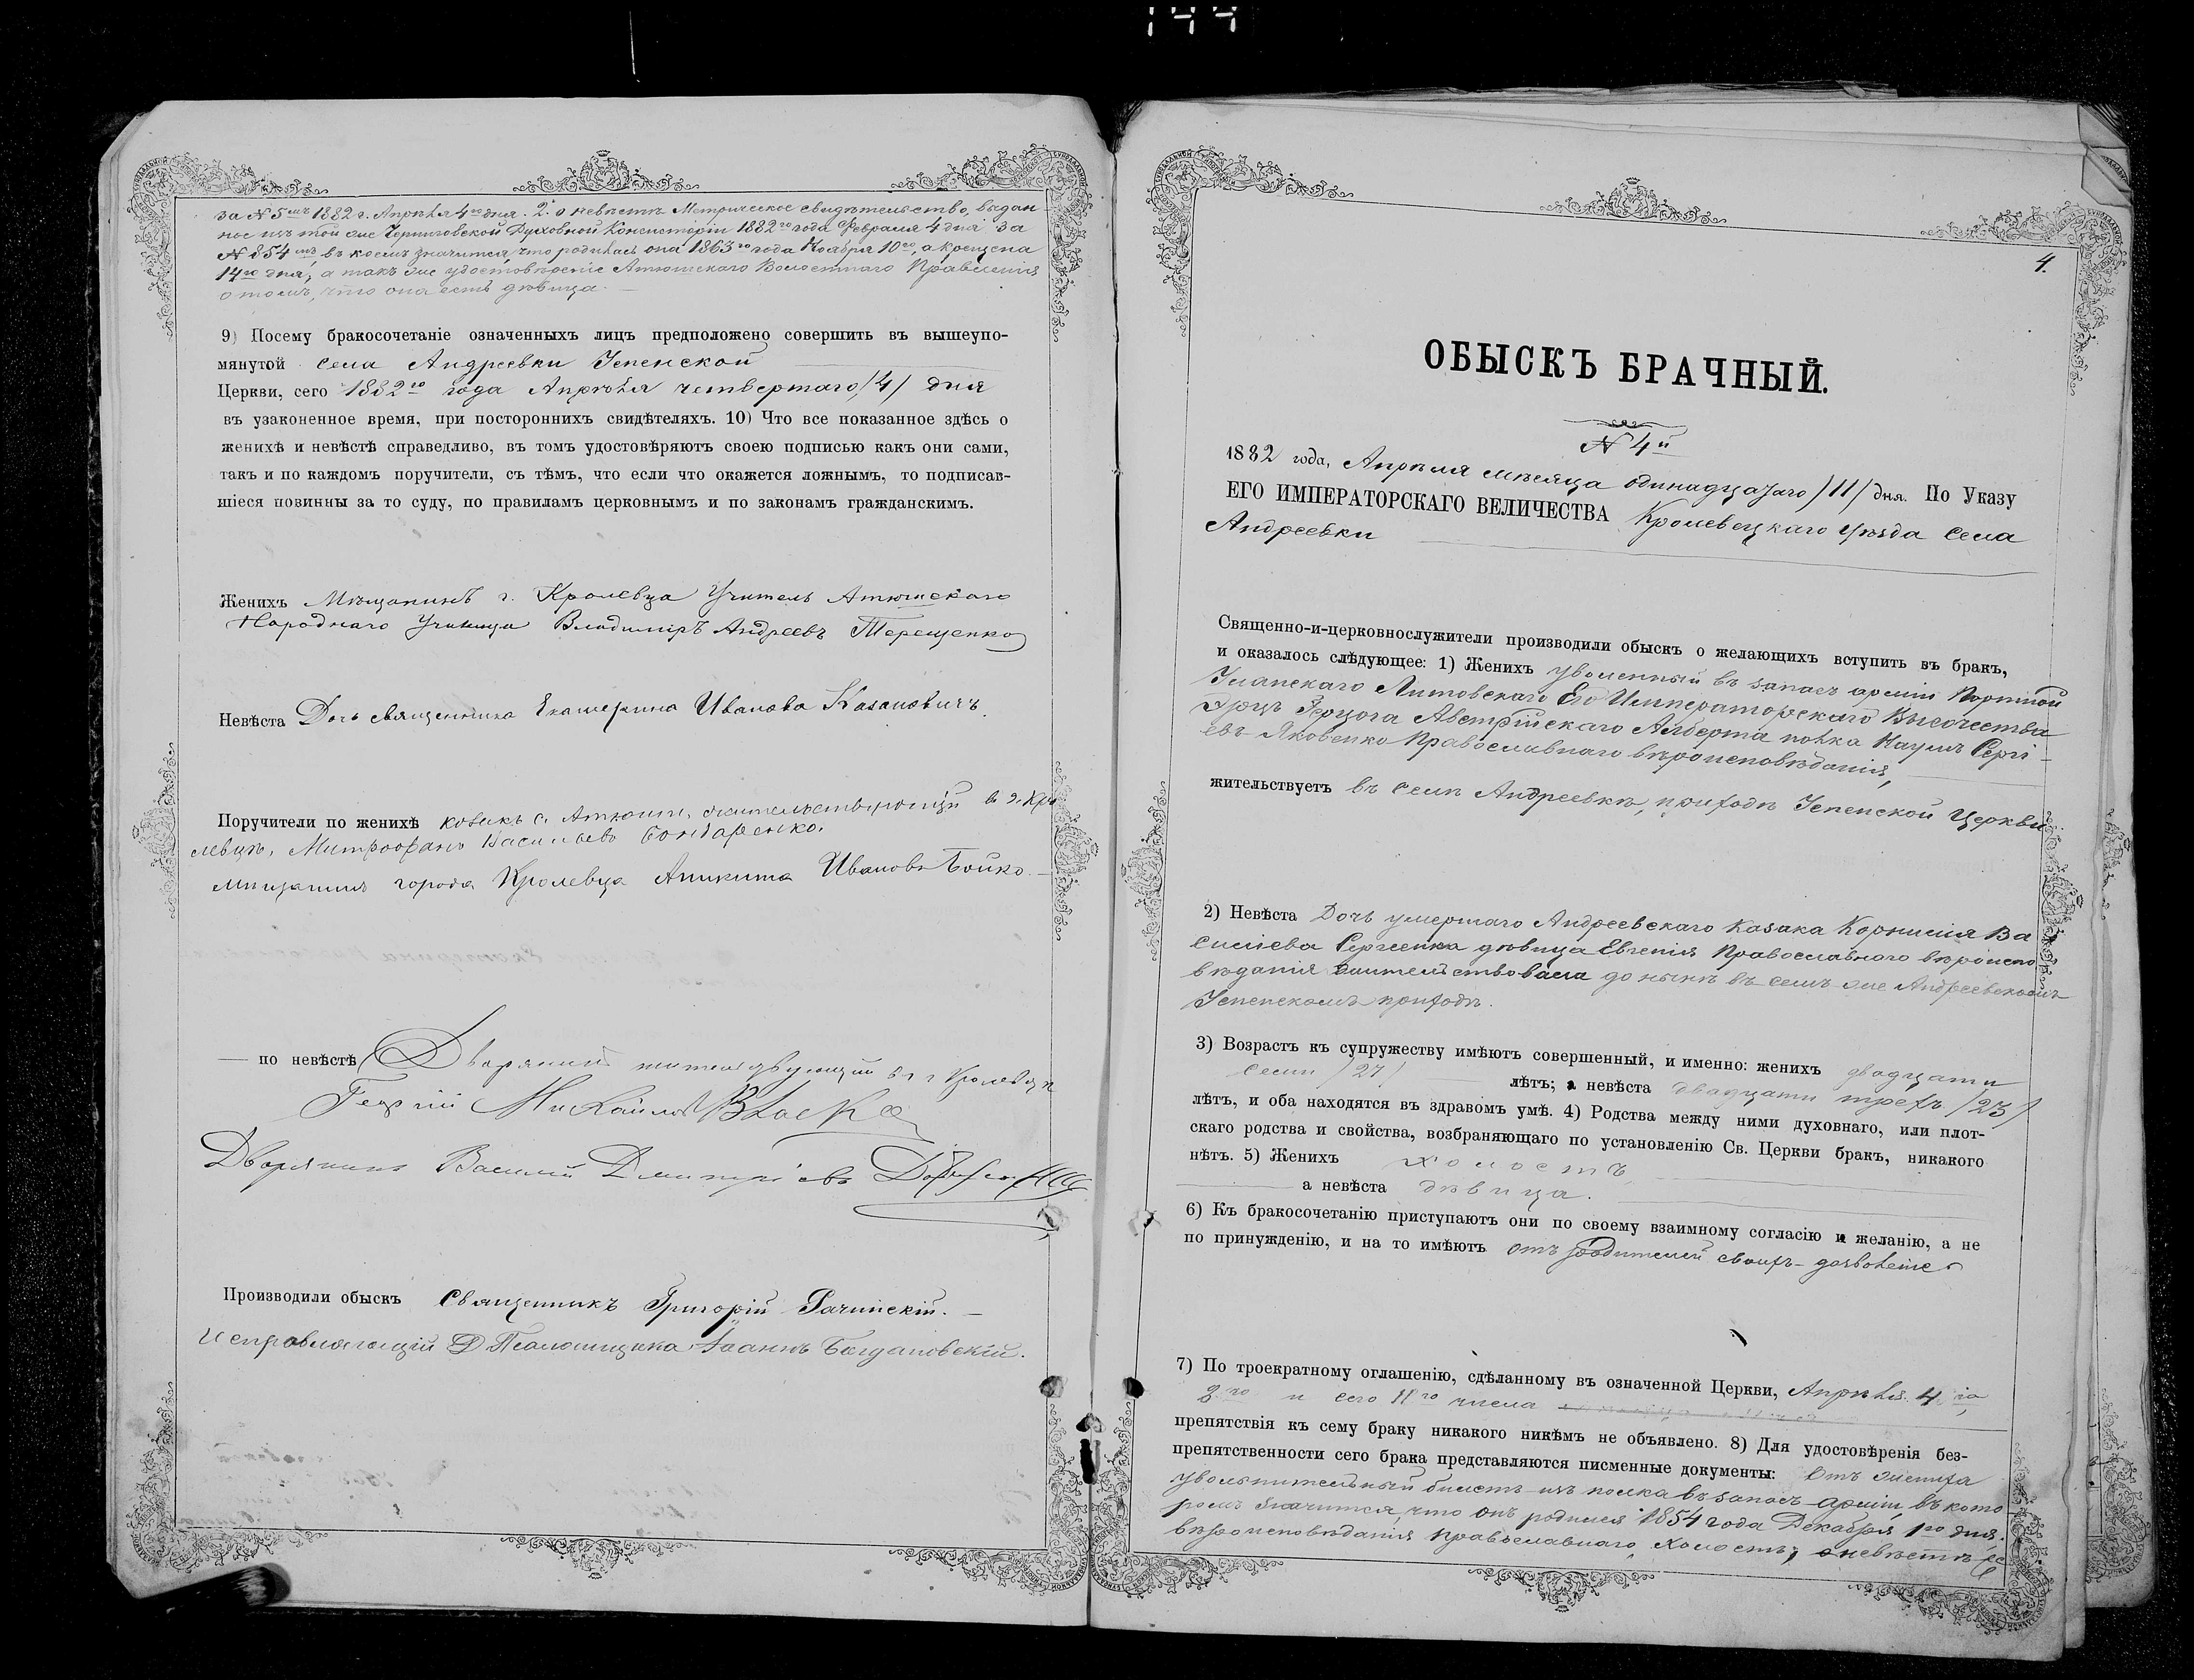 за №5мъ 1882 г. Апрѣля 4го дня. 2. о невѣстѣ Метрическое свидѣтельство, выдан-
ное изъ той же Черниговской Духовной Консисторіи 1882го года Февраля 4 дня за
№854мъ, въ коемъ значится, что родилась она 1863го года Ноября 10го, а крещена
14го дня, а такъ же удостовѣреніе Атюшскаго Волостнаго Правленія
о томъ, что она есть дѣвица.
9) Посему бракосочетаніе означенныхъ лицъ предположено совершить въ вышеупо-
мянутой села Андреевки Успенской
Церкви, сего 1882го года Апрѣля четвертаго /4/ дня
въ узаконенное время, при постороннихъ свидѣтеляхъ. 10) Что все показанное здѣсь о
женихѣ и невѣстѣ справедливо, въ томъ удостовѣряютъ своею подписью какъ они сами,
такъ и по каждомъ поручители, съ тѣмъ, что если что окажется ложнымъ, то подписав-
шіеся повинны за то суду, по правиламъ церковнымъ и по законамъ гражданскимъ.
Женихъ Мѣщанинъ г. Кролевца Учитель Атюшскаго
Народнаго Училища Владиміръ Андреевъ Терещенко
Невѣста Дочь священника Екатерина Иванова Казановичъ.
Поручители по женихѣ козакъ с. Атюши, жительствующій в г. Кро
левцѣ, Митрофанъ Васильевъ Бондаренко.
Мищанинъ города Кролевца Аникита Ивановъ Бойко.
— по невѣстѣ Дворянинъ жительствующій въ г Кролевцѣ
Георгій Михайловъ
Дворянинъ Василій Дмитріевъ
Производили обыскъ Священникъ Григорій Рачинскій.
Исправляющій Д Псаломщика Іоаннъ Богдановскій.
144
4.
ОБЫСКЪ БРАЧНЫЙ.
№ 4й
1882 года, Апрѣля мѣсяца одинадцатаго /11/ дня. По Указу
ЕГО ИМПЕРАТОРСКАГО ВЕЛИЧЕСТВА Кролевецкаго Уѣзда Села
Андреевки
Священно-и-церковнослужители производили обыскъ о желающихъ вступить въ бракъ,
и оказалось слѣдующее: 1) Женихъ уволенный въ запасъ арміи Портной
Уланскаго Литовскаго Его Императорскаго Высочества
Эрцъ Герцога Австрійскаго Алберта полка Наумъ Сергі-
евъ Яковенко Православнаго вѣроисповѣданія,
жительствуетъ въ селѣ Андреевкѣ, приходѣ Успенской Церкви
2) Невѣста Дочь умершаго Андреевскаго Казака Корнилія Ва
силіева Сергѣенка дѣвица Евгенія Православного вѣроиспо
вѣданія жительствовала до нынѣ въ семъ же Андреевскомъ
Успенскомъ приходѣ.
3) Возрастъ къ супружеству имѣютъ совершенный, и именно: женихъ двадцати
семи /27/ лѣтъ; а невѣста двадцати трехъ /23/
лѣтъ, и оба находятся въ здравомъ умѣ. 4) Родства между ними духовнаго, или плот-
скаго родства и свойства, возбраняющаго по установленію Св. Церкви бракъ, никакого
нѣтъ. 5) Женихъ холостъ,
а невѣста дѣвица.
6) Къ бракосочетанію приступаютъ они по своему взаимному согласію и желанію, а не
по принужденію, и на то имѣютъ отъ родителей своихъ дозволеніе
7) По троекратному оглашенію, сдѣланному въ означенной Церкви, Апрѣля 4го,
и сего 11го числа
препятствія къ сему браку никакого никѣмъ не объявлено. 8) Для удостовѣренія без-
препятственности сего брака представляются писменные документы: Отъ жениха
увольнительный билетъ изъ полка въ запасъ арміи, въ кото
ромъ значится, что онъ родился 1854 года Декабря 1го дня,
вѣроисповѣданія православнаго, холостъ, о невѣстѣ